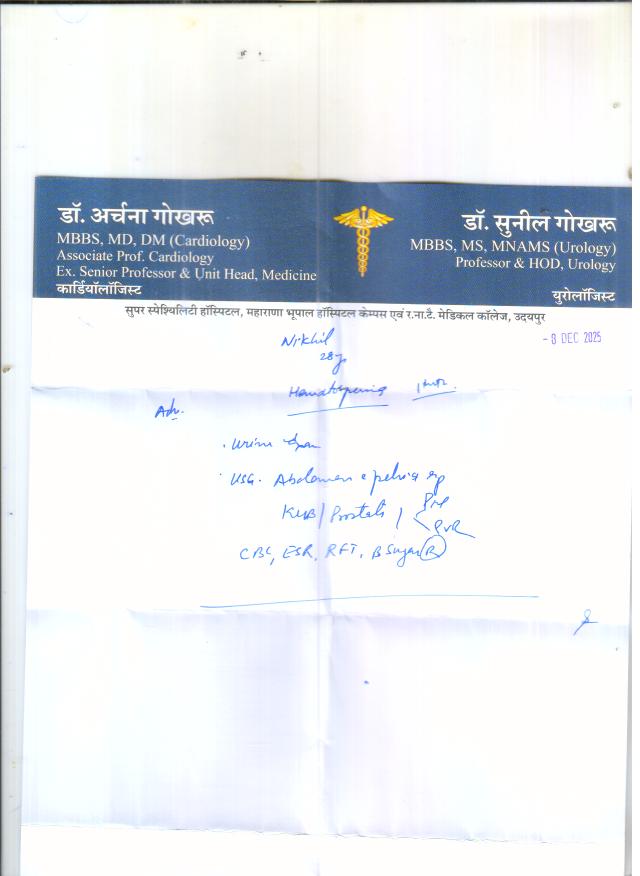 डॉ. अर्चना गोखरू
MBBS, MD, DM (Cardiology)
Associate Prof. Cardiology
Ex. Senior Professor & Unit Head, Medicine
कार्डियॉलॉजिस्ट
डॉ. सुनील गोखरू
MBBS, MS, MNAMS (Urology)
Professor & HOD, Urology
युरोलॉजिस्ट
सुपर स्पेश्यिलिटी हॉस्पिटल, महाराणा भूपाल हॉस्पिटल केम्पस एवं र.ना.टै. मेडिकल कॉलेज, उदयपुर
- 8 DEC 2025
Nikhil
28y
Adv.
. Urine
. USG. Abdomen c pelvis
KUB/Prostate / PVR
CBC, ESR, RFT, B Sugar (R)